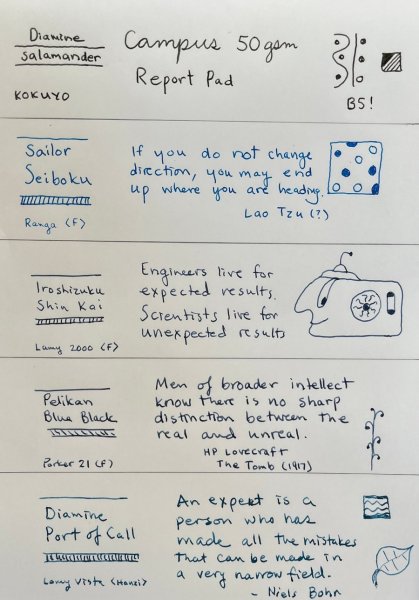 Diamine
Salamander
KOKUYO
Campus 50gsm
Report Pad
B5!
Sailor
Seiboku
Ranga (F)
If you do not change
direction, you may end
up where you are heading.
Lao Tzu (?)
Iroshizuku
Shin Kai
Lamy 2000 (F)
Engineers live for
expected results.
Scientists live for
unexpected results
Pelikan
Blue Black
Parker 21 (F)
Men of broader intellect
know there is no sharp
distinction between the
real and unreal.
HP Lovecraft
The Tomb (1917)
Diamine
Port of Call
Lamy Vista (Hanzi)
An expert is a
person who has
made all the mistakes
that can be made in
a very narrow field.
- Niels Bohr